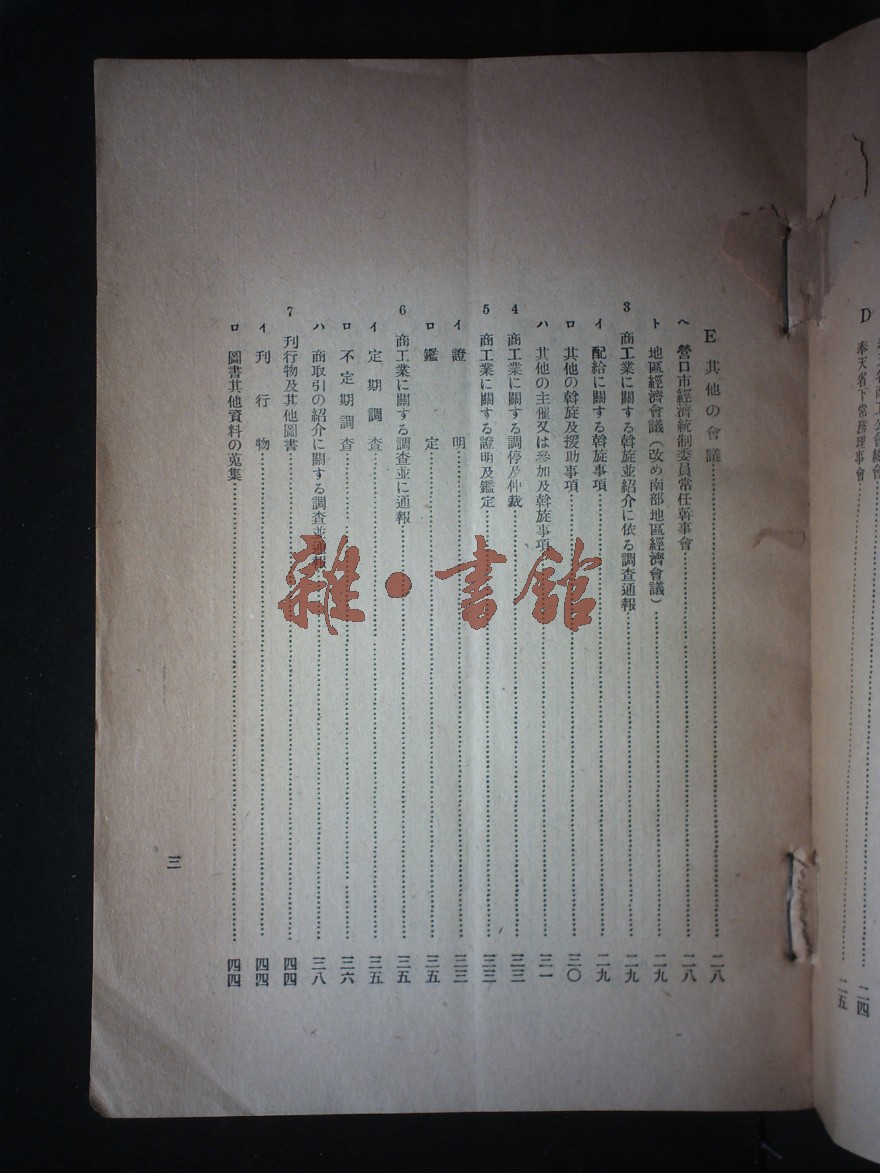 D
奉天省下常務理事會……二五
二四
E 其他の會議……二八
ヘ 營口市經濟統制委員常任幹事會……二八
ト 地區經濟會議(改め南部地區經濟會議)……二九
3 商工業に關する斡旋並紹介に依る調査通報……二九
イ 配給に關する斡旋事項……二九
ロ 其他の斡旋及援助事項……三〇
ハ 其他の主催又は參加及斡旋事項……三一
4 商工業に關する調停及仲裁……三三
5 商工業に關する證明及鑑定……三三
イ 證明……三三
ロ 鑑定……三五
6 商工業に關する調査並に通報……三五
イ 定期調査……三五
ロ 不定期調査……三六
ハ 商取引の紹介に關する調査並通報……三八
7 刊行物及其他圖書……四四
イ 刊行物……四四
ロ 圖書其他資料の蒐集……四四
三
雜·書館